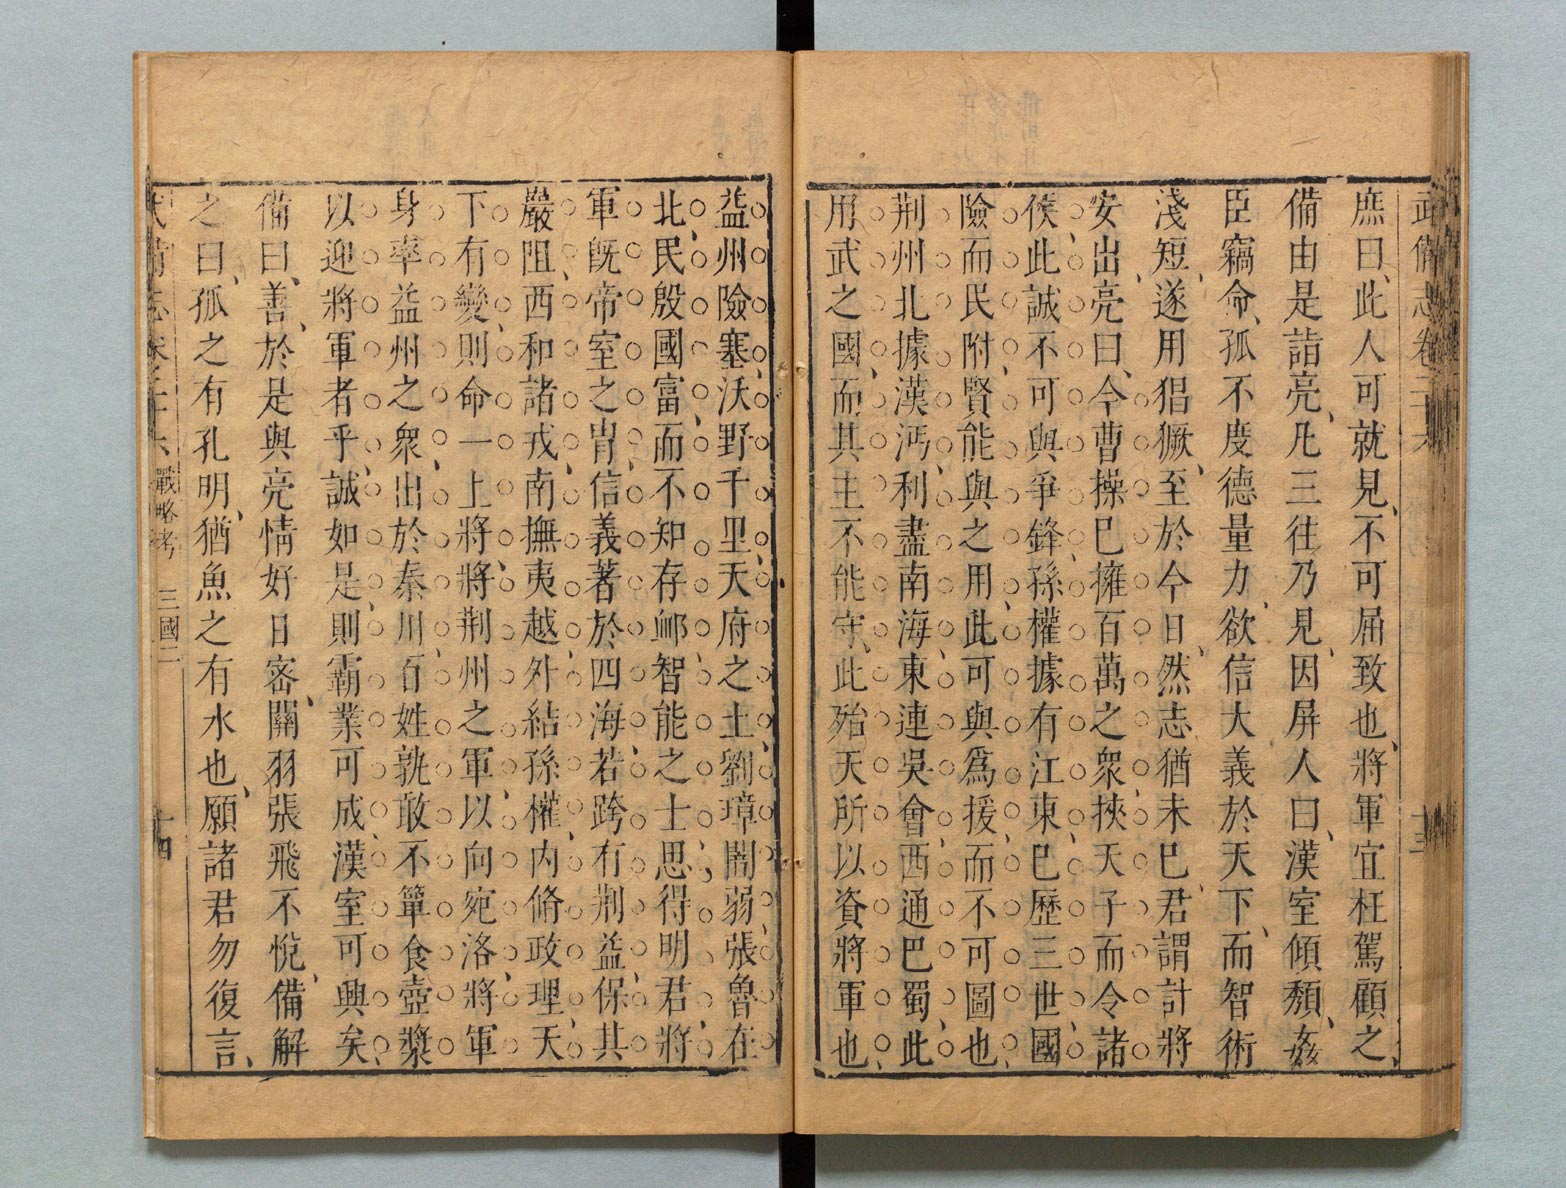 武備志卷二十六
十三
庶曰、此人可就見、不可屈致也、將軍宜枉駕顧之、
備由是詣亮、凡三往乃見、因屏人曰、漢室傾頹、姦
臣竊命、孤不度德量力、欲信大義於天下、而智術
淺短、遂用猖獗、至於今日、然志猶未已、君謂計將
安出、亮曰、今曹操已擁百萬之衆、挾天子而令諸
侯、此誠不可與爭鋒、孫權據有江東、已歷三世、國
險而民附、賢能與之用、此可與爲援、而不可圖也、
荆州北據漢沔、利盡南海、東連吳會、西通巴蜀、此
用武之國、而其主不能守、此殆天所以資將軍也、
益州險塞、沃野千里、天府之土、劉璋闇弱、張魯在
北、民殷國富、而不知存䘏、智能之士、思得明君、將
軍旣帝室之胄、信義著於四海、若跨有荆益、保其
嚴阻、西和諸戎、南撫夷越、外結孫權、内脩政理、天
下有變、則命一上將、將荆州之軍以向宛洛、將軍
身率益州之衆、出於秦川、百姓孰敢不簞食壺漿
以迎將軍者乎、誠如是、則霸業可成、漢室可興矣、
備曰、善、於是與亮情好日密、關羽張飛不悅、備解
之曰、孤之有孔明、猶魚之有水也、願諸君勿復言、
武備志卷二十六 戰略考 三國二 十四